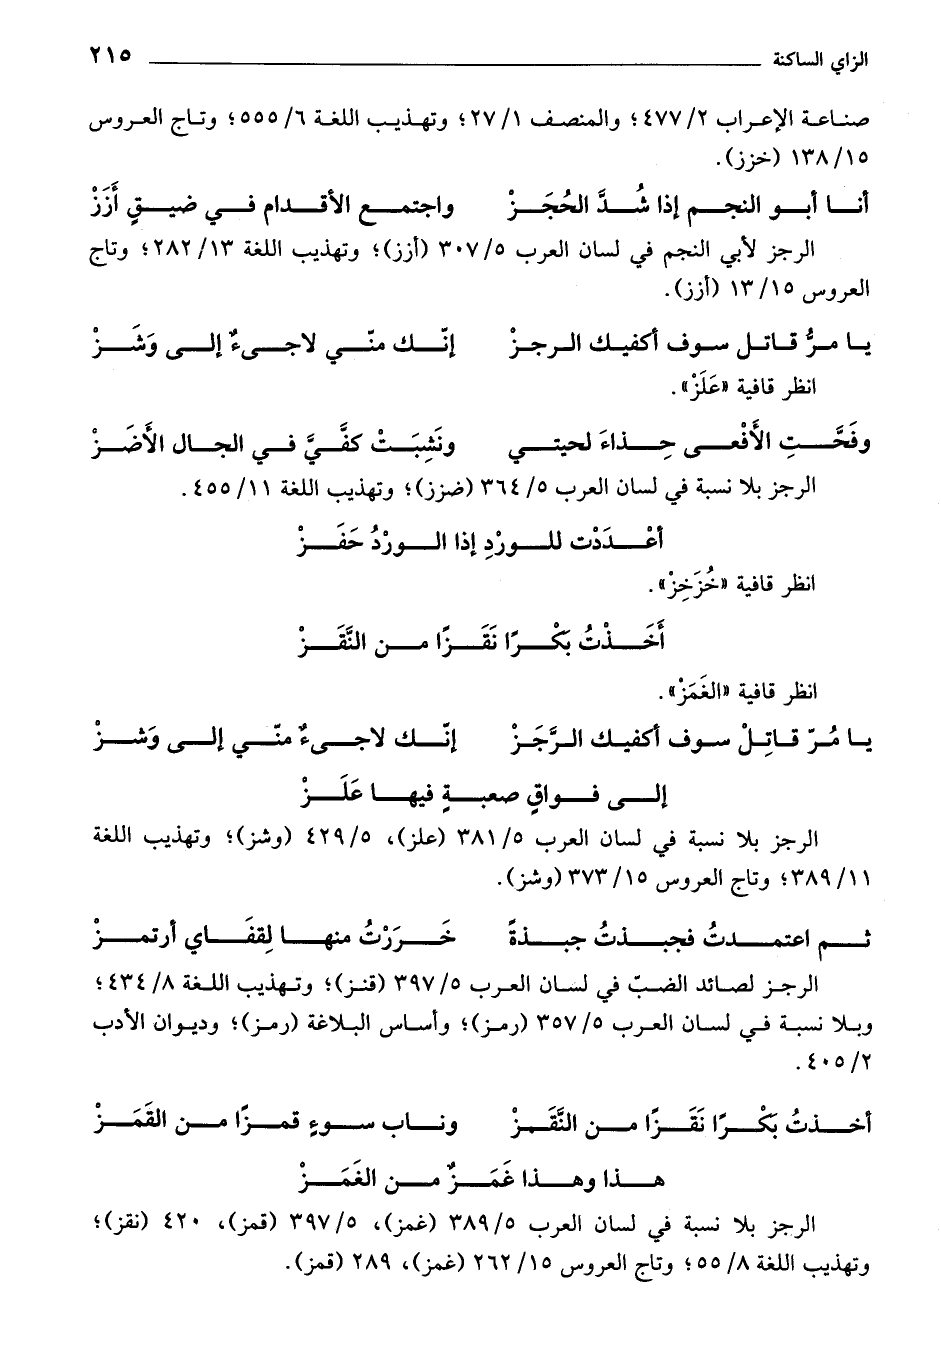 الزاي الساكنة ٢١٥
صناعة الإعراب ٤٧٧/٢؛ والمنصف ٢٧/١؛ وتهذيب اللغة ٥٥٥/٦؛ وتاج العروس
١٣٨/١٥ (خزز).
أنا أبو النجم إذا شُدَّ الحُجَزْ واجتمع الأقدام في ضيقٍ أَزَزْ
الرجز لأبي النجم في لسان العرب ٣٠٧/٥ (أزز)؛ وتهذيب اللغة ٢٨٢/١٣؛ وتاج
العروس ١٣/١٥ (أزز).
يا مرُّ قاتل سوف أكفيك الرجزْ إنّك منّي لاجىءٌ إلى وَشَزْ
انظر قافية «عَلَزْ».
وفَحَّتِ الأَفْعى حِذاءَ لحيتي ونَشِبَتْ كفَّيَّ في الجال الأَضَزْ
الرجز بلا نسبة في لسان العرب ٣٦٤/٥ (ضزز)؛ وتهذيب اللغة ٤٥٥/١١.
أعْدَدْت للوردِ إذا الوردُ حَفَزْ
انظر قافية «خُزَخِزْ».
أَخَذْتُ بَكْرًا نَقَزًا من النَّقَزْ
انظر قافية «الغَمَزْ».
يا مُرّ قاتِلْ سوف أكفيك الرَّجَزْ إنّك لاجىءٌ منّي إلى وَشزْ
إلى فواقٍ صعبةٍ فيها عَلَزْ
الرجز بلا نسبة في لسان العرب ٣٨١/٥ (علز)، ٤٢٩/٥ (وشز)؛ وتهذيب اللغة
٣٨٩/١١؛ وتاج العروس ٣٧٣/١٥ (وشز).
ثم اعتمدتُ فجبذتُ جبذةً خَرَرْتُ منها لِقفَاي أرتمزْ
الرجز لصائد الضبّ في لسان العرب ٣٩٧/٥ (قنز)؛ وتهذيب اللغة ٤٣٤/٨؛
وبلا نسبة في لسان العرب ٣٥٧/٥ (رمز)؛ وأساس البلاغة (رمز)؛ وديوان الأدب
٤٠٥/٢.
أخذتُ بَكْرًا نَقَزًا من النَّقَزْ وناب سوءٍ قمزًا من القَمَزْ
هذا وهذا غَمَزٌ من الغَمَزْ
الرجز بلا نسبة في لسان العرب ٣٨٩/٥ (غمز)، ٣٩٧/٥ (قمز)، ٤٢٠ (نقز)؛
وتهذيب اللغة ٥٥/٨؛ وتاج العروس ٢٦٢/١٥ (غمز)، ٢٨٩ (قمز).